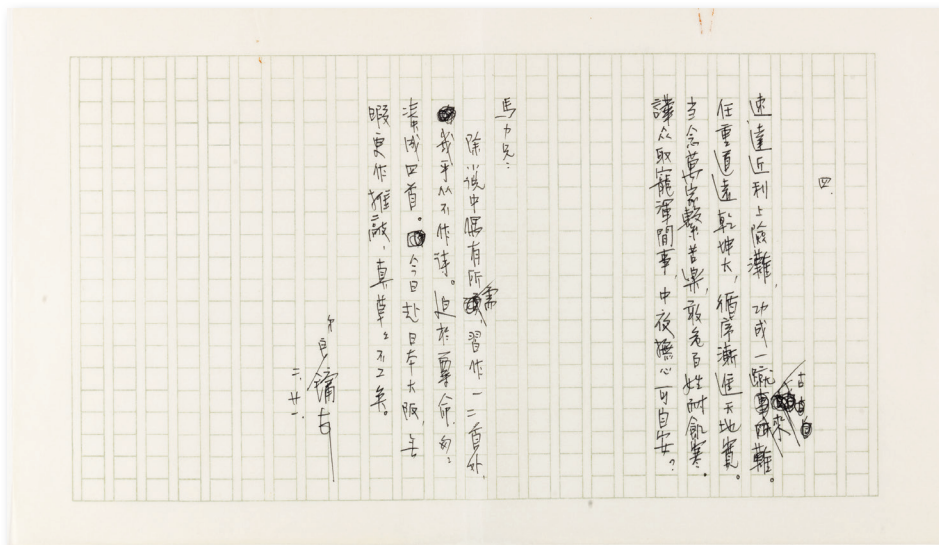 四.
速達近利上險灘，功成一蹴古來難。
任重道遠乾坤大，循序漸進天地寬。
当念萬家繫苦樂，敢忘百姓耐飢寒。
譁众取寵渾閒事，中夜撫心可自安？
馬力兄：
除小说中偶有所需習作一二首外，
我平公不作诗。迫於尊命，匆匆
湊成四首。今日赴日本大阪，无
暇更作推敲，真草草不工矣。
弟 良鏞 上
二、廿一.